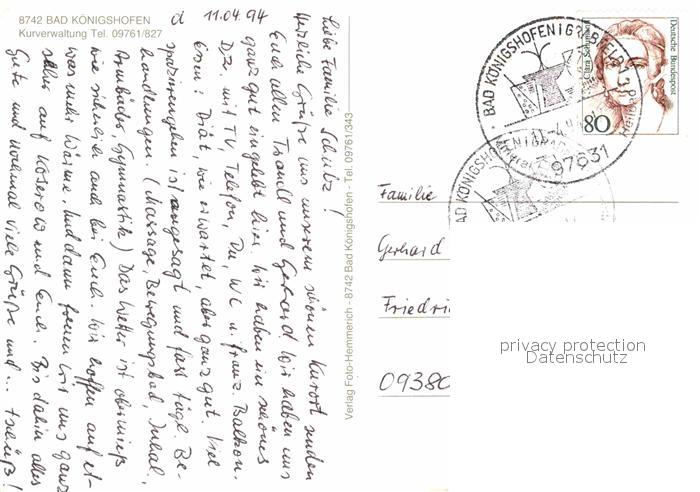 8742 BAD KÖNIGSHOFEN
Kurverwaltung Tel. 09761/827
d 11.04.94
Liebe Familie Schulz!
Herzliche Grüße aus unserem schönen Kurort senden
Euch allen Traudl und Gerhard. Wir haben uns
ganz gut eingelebt hier. Wir haben ein schönes
DZ. mit TV, Telefon, Du, WC u. franz. Balkon.
Essen: Diät, wie erwartet, aber ganz gut. Viel
spazierengehen ist angesagt und fast tägl. Be-
handlungen. (Massage, Bewegungsbad, Inhal.,
Armbäder, Gymnastik) Das Wetter ist obermieß
wie sicherlich auch bei Euch. Wir hoffen auf et-
was mehr Wärme. Und dann freuen wir uns ganz
auf und Euch. Bis dahin alles
Gute und nochmal viele Grüße und ... tschüß!
Verlag Foto-Hemmerich - 8742 Bad Königshofen - Tel. 09761/343
BAD KÖNIGSHOFEN I GRABFELD 1
97631
BAD KÖNIGSHOFEN I
Deutsche Bundespost
Clara Schumann
80
Familie
Gerhard
Friedri
09380
privacy protection
Datenschutz